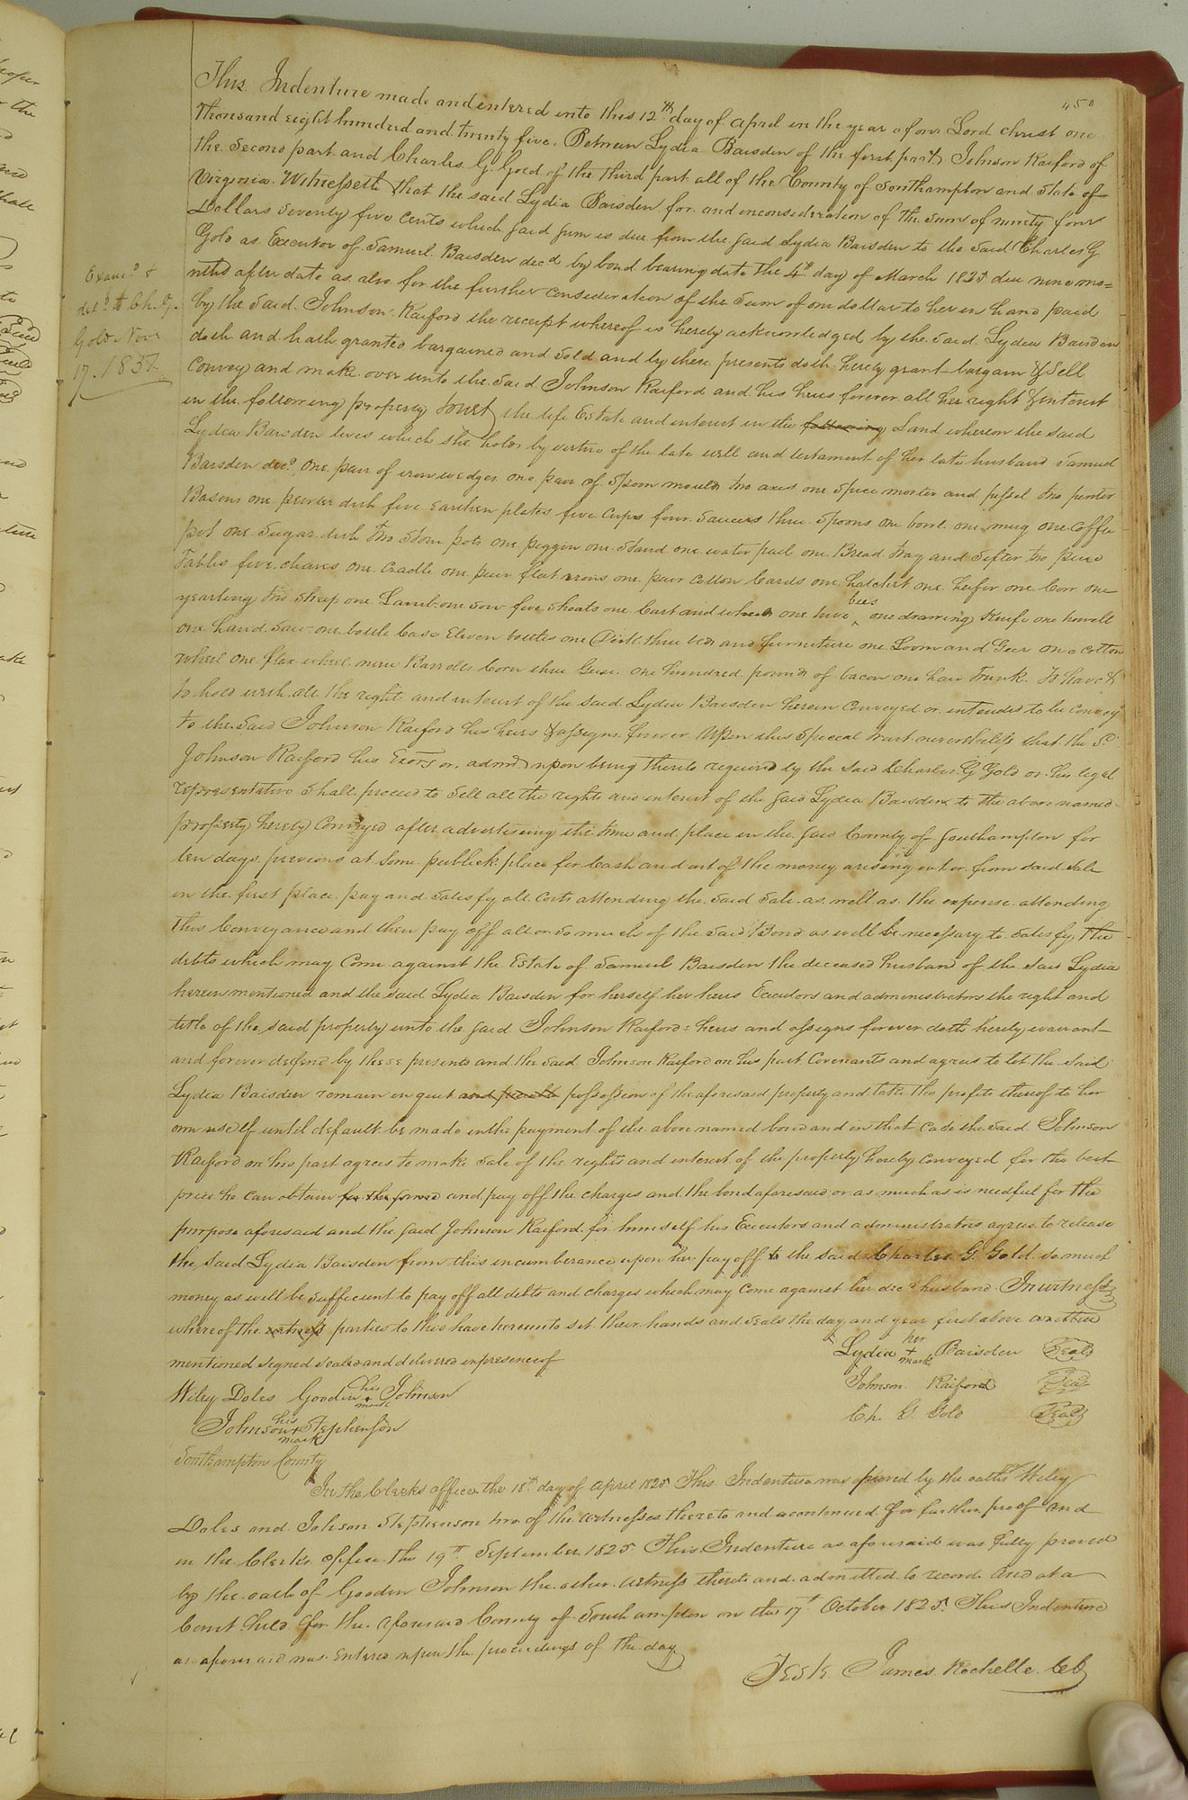 450
This Indenture made and entered into this 12th day of April in the year of our Lord Christ one
thousand eight hundred and twenty five. Between Lydia Baisden of the first part Johnson Raiford of
the Second part and Charles G Gold of the third part all of the County of Southampton and State of
Virginia. Witnesseth that the said Lydia Baisden for and inconsideration of the Sum of ninety four
Dollars Seventy five Cents which said sum is due from the said Lydia Baisden to the Said Charles G
Gold as Executor of Samuel Baisden decd by bond bearing date the 4th day of March 1825 due nine mo=
nths after date as also for the further consideration of the Sum of one dollar to her in hand paid
by the Said Johnson Raiford the receipt whereof is hereby acknowledged by the Said Lydia Baisden
doth and hath granted bargained and Sold and by these presents doth hereby grant bargain & Sell
Convey and make over unto the Said Johnson Raiford and his heirs forever all her right & interest
in the following property to wit, the life Estate and interest in the following Land whereon the said
Lydia Baisden lives which she holds by virtue of the late will and testament of her late husband Samuel
Baisden decd. One pair of iron wedges one pair of Spoon moulds two axes one Spice morter and pestel two pewter
Basons one pewter dish five earthen plates five Cups four Saucers three Spoons one bowl one mug one Coffe
pot one Sugar dish two Stone pots one piggin one Stand one water pail one Bread tray and Sifter two pine
tables five chares one Cradle one pair flat irons one pair Cotton Cards one hatchet one heifer one Cow one
yearling two Sheep one Lamb one Sow five Shoats one Cart and wheels one hive bees one drawing knife one howell
one hand Saw one bottle Case Eleven bottles one Dish three beds and furniture one Loom and Geer one Cotton
wheel one flax wheel nine Barrells Corn three Geese one hundred pounds of bacon one hair trunk. To have &
to hold with all the right and interest of the said Lydia Baisden herein Conveyed or intended to be Convey
to the Said Johnson Raiford his heirs & assigns forever Upon this Special trust nevertheless that the Sd
Johnson Raiford his Exors or admrs upon being thereto required by the Said Charles G Gold or his legal
representative Shall proceed to Sell all the rights and interest of the said Lydia Baisden to the above named
property hereby Conveyed after advertising the time and place in the said County of Southampton for
ten days previous at Some publick place for Cash and out of the money arising out or from Said Sale
in the first place pay and Satisfy all Costs attending the Said Sale as well as the expense attending
this Conveyance and then pay off all or So much of the Said Bond as will be necessary to Satisfy the
debts which may Come against the Estate of Samuel Baisden the deceased husband of the said Lydia
herein mentioned and the said Lydia Baisden for herself her heirs Executors and administrators the right and
title of the said property unto the said Johnson Raiford heirs and assigns forever doth hereby warrant
and forever defend by these presents and the said Johnson Raiford on his part Covenants and agrees to let the said
Lydia Baisden remain in quiet and peacable possession of the aforesaid property and take the profits thereof to her
own use If until default be made in the payment of the above named bond and in that Case the Said Johnson
Raiford on his part agrees to make Sale of the rights and interest of the property hereby Conveyed for the best
price he can obtain and pay off the charges and the bond aforesaid or as much as is needful for the
purpose aforesaid and the said Johnson Raiford for himself his Executors and administrators agrees to release
the said Lydia Baisden from this incumberance upon her pay off to the said Charles G. Gold so much
money as will be Sufficient to pay off all debts and charges which may Come against her decd husband. In witness
whereof the witness parties to this have hereunto set their hands and seals the day and year first above written
mentioned Signed Sealed and delivered in presence of
Lydia her + mark Baisden Seal
Wiley Doles Gooden his + mark Johnson
Johnson Raiford Seal
Johnson his + mark Stephenson
Ch. G Gold Seal
Southampton County
In the Clerks office the 18th day of April 1825 This Indenture was proved by the oaths Wiley
Doles and Johnson Stephenson two of the witnesses thereto and acontinued for further proof and
in the Clerk's office the 19th September 1825. This Indenture as aforesaid was fully proved
by the oath of Gooden Johnson the other witness thereto and admitted to record and at a
Court held for the aforesaid County of Southampton on the 17th October 1825. This Indenture
as aforesaid was Entered upon the proceedings of the day
Teste James Rochelle Clk
Examd &
deld to Ch. G.
Gold Novr
17. 1837.